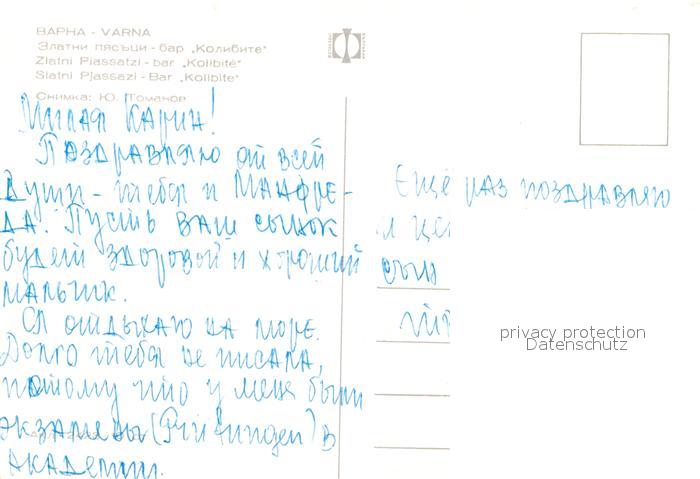 ВАРНА - VARNA
Златни пясъци - бар „Колибите"
Zlatni Piassatzi - bar „Kolibité"
Slatni Pjassazi - Bar „Kolibite"
Снимка: Ю. Томанов
Милая Карин!
Поздравляю от всей
души - тебя и Манфре-
да. Пусть ваш сынок
будет здоровой и хороший
мальчик.
Я отдыхаю на море.
Долго тебя не писала,
потому что у меня были
экзамены (Prüfungen) в
академии.
Ещё раз поздравляю
и це
сын
privacy protection
Datenschutz